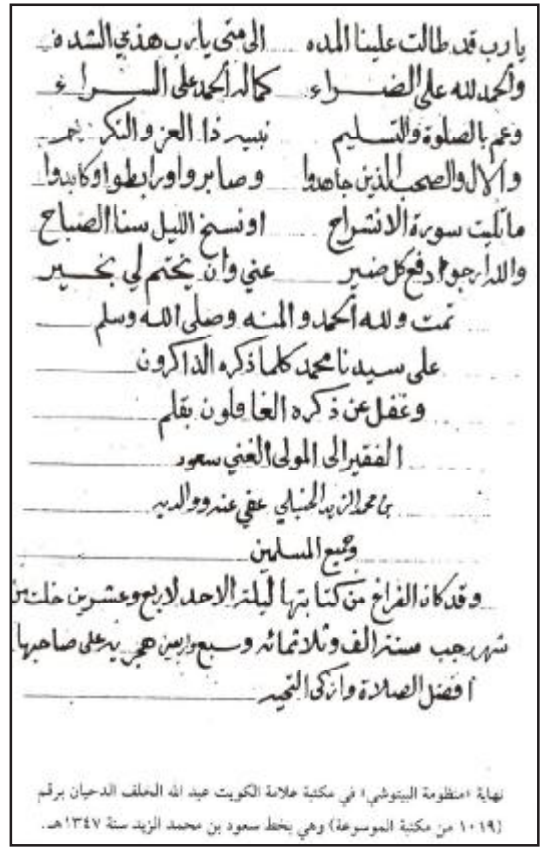 يا رب قد طالت علينا المده    الى متى يا رب هذي الشده
والحمد لله على الضراء    كما له الحمد على السراء
وعم بالصلوة والتسليم    نبيه ذا العز والتكريم
والال والصحب الذين جاهدوا    وصابروا ورابطوا وكابدوا
ما تليت سورة الانشراح    او نسخ الليل سنا الصباح
والله ارجو دفع كل ضير    عني وان يختم لي بخير
تمت ولله الحمد والمنه وصلى الله وسلم
على سيدنا محمد كلما ذكره الذاكرون
وغفل عن ذكره الغافلون بقلم
الفقير الى المولى الغني سعود
بن محمد الزيد الحنبلي عفي عنه ووالديه
وجميع المسلمين
وقد كان الفراغ من كتابتها ليلة الاحد لاربع وعشرين خلت من
شهر رجب سنة الف وثلاثمائه وسبع واربعين هجريه على صاحبها
افضل الصلاة وازكى التحيه
نهاية «منظومة البيتوشي» في مكتبة علامة الكويت عبد الله الخلف الدحيان برقم
(١٠١٩ من مكتبة الموسوعة) وهي بخط سعود بن محمد الزيد سنة ١٣٤٧هـ.